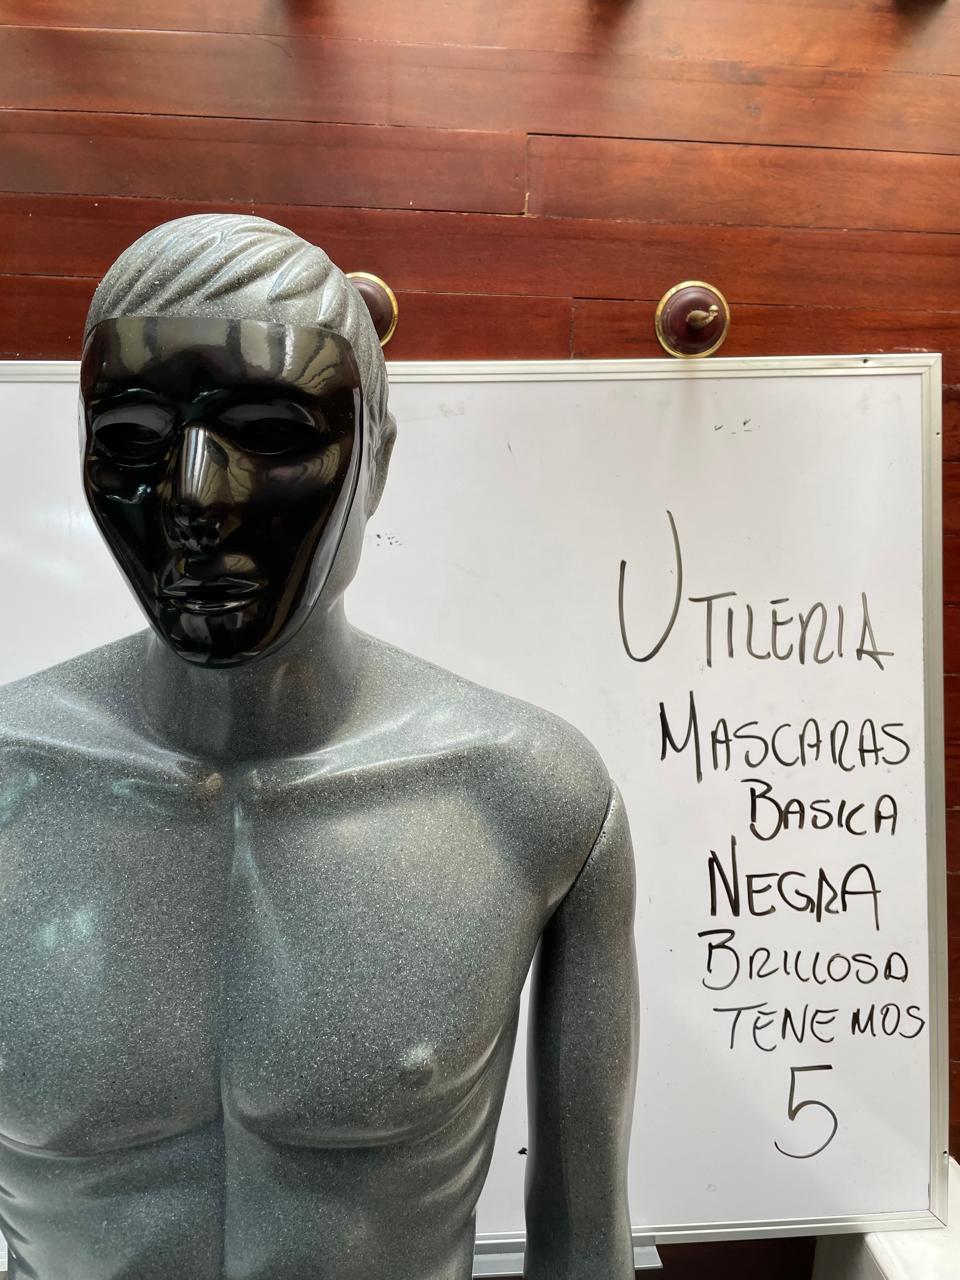 UTILERIA
MASCARAS
BASICA
NEGRA
BRILLOSA
TENEMOS
5